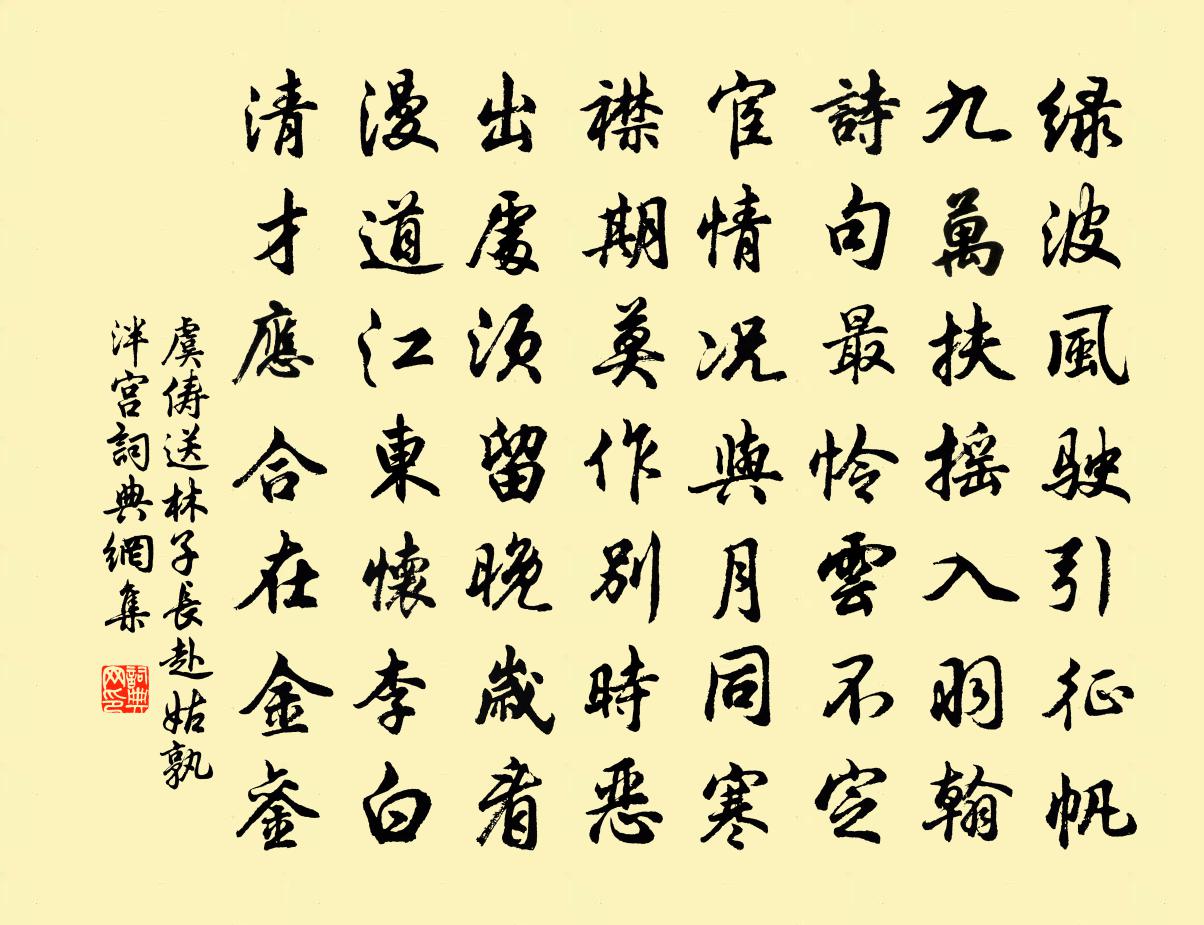 绿波風駛引征帆
九萬扶摇入羽翰
詩句最怜雲不定
宦情况與月同寒
襟期莫作别時惡
出處须留晚歲看
漫道江東懷李白
清才應合在金銮
虞俦送林子長赴姑孰
泮宫詞典網集
詞典网印